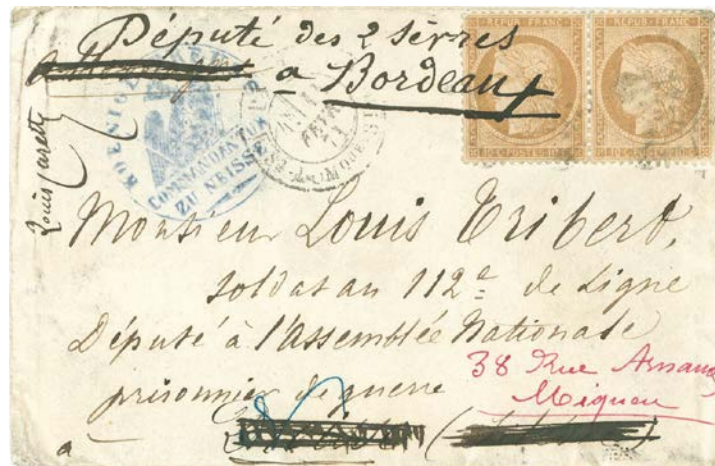 Député des 2 Sèvres
a Bordeaux
REPUB. FRANC.
REPUB. FRANC.
10 C. POSTES 10 C.
10 C. POSTES 10 C.
COMMANDANTUR
ZU NEISSE
FEVR.
71
Louis
Monsieur Louis Tribert,
soldat au 112e de Ligne
Député à l'Assemblée Nationale
prisonnier de guerre
38 Rue Arnaud
Miqueu
a